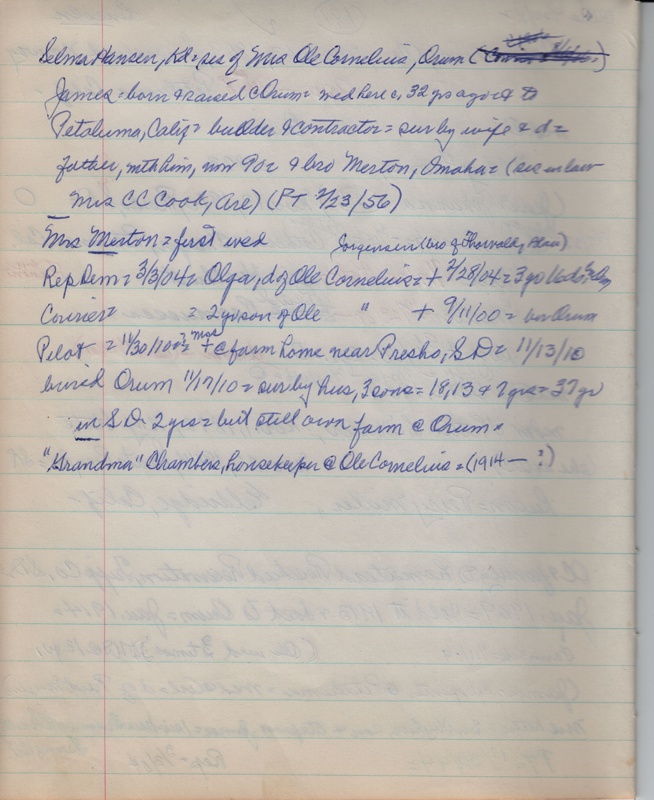 Selma Hansen, Kd = sis of Mrs Ole Cornelius, Orum (
James = born & raised @ Orum = wed here c. 32 yrs ago &
Petaluma, Calif = builder & contractor = sur by wife & d =
father, with him, now 90 = & bro Merton, Omaha = (sis in law
Mrs CC Cook, Are) (PT 2/23/56)
Mrs Merton = first wed
Jorgensen (bro of Thorvald, Blair)
Rep Dem = 3/3/04 = Olga, d of Ole Cornelius = + 2/28/04 = 3 yo
Courier = = 2 yo son of Ole " + 9/11/00 = bur Orum
Pilot = 11/30/10 = Mrs + @ farm home near Presho, S.D. = 11/13/10
buried Orum 11/17/10 = sur by hus, 3 sons = 18, 13 & 7 yrs = 37 yr
in S.D. 2 yrs = but still own farm @ Orum =
"Grandma" Chambers, housekeeper @ Ole Cornelius = (1914 — ?)